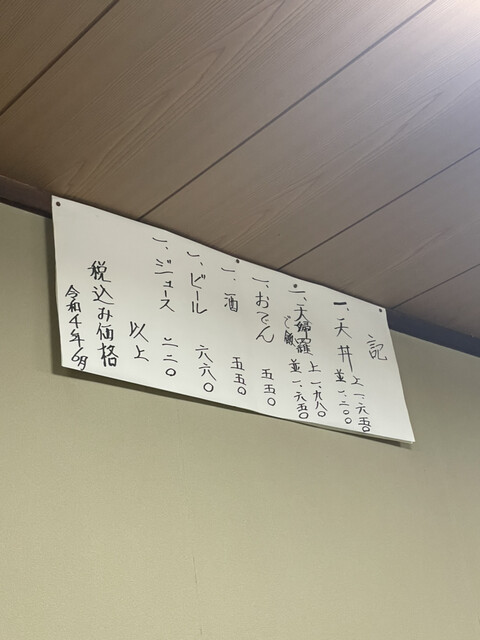 記
一、天丼 上 一、六五〇
並 一、二〇〇
一、天婦羅 上 一、九八〇
ご飯 並 一、六五〇
一、おでん 五五〇
一、酒 五五〇
一、ビール 六六〇
一、ジュース 二二〇
以上
税込み価格
令和4年6月